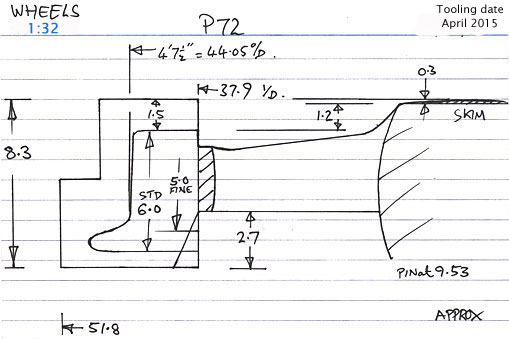 WHEELS
1:32
P72
Tooling date
April 2015
4'7½" = 44.05 O/D.
37.9 I/D.
0.3
SKIM
1.5
1.2
8.3
STD
6.0
5.0
FINE
2.7
PIN at 9.53
51.8
APPROX